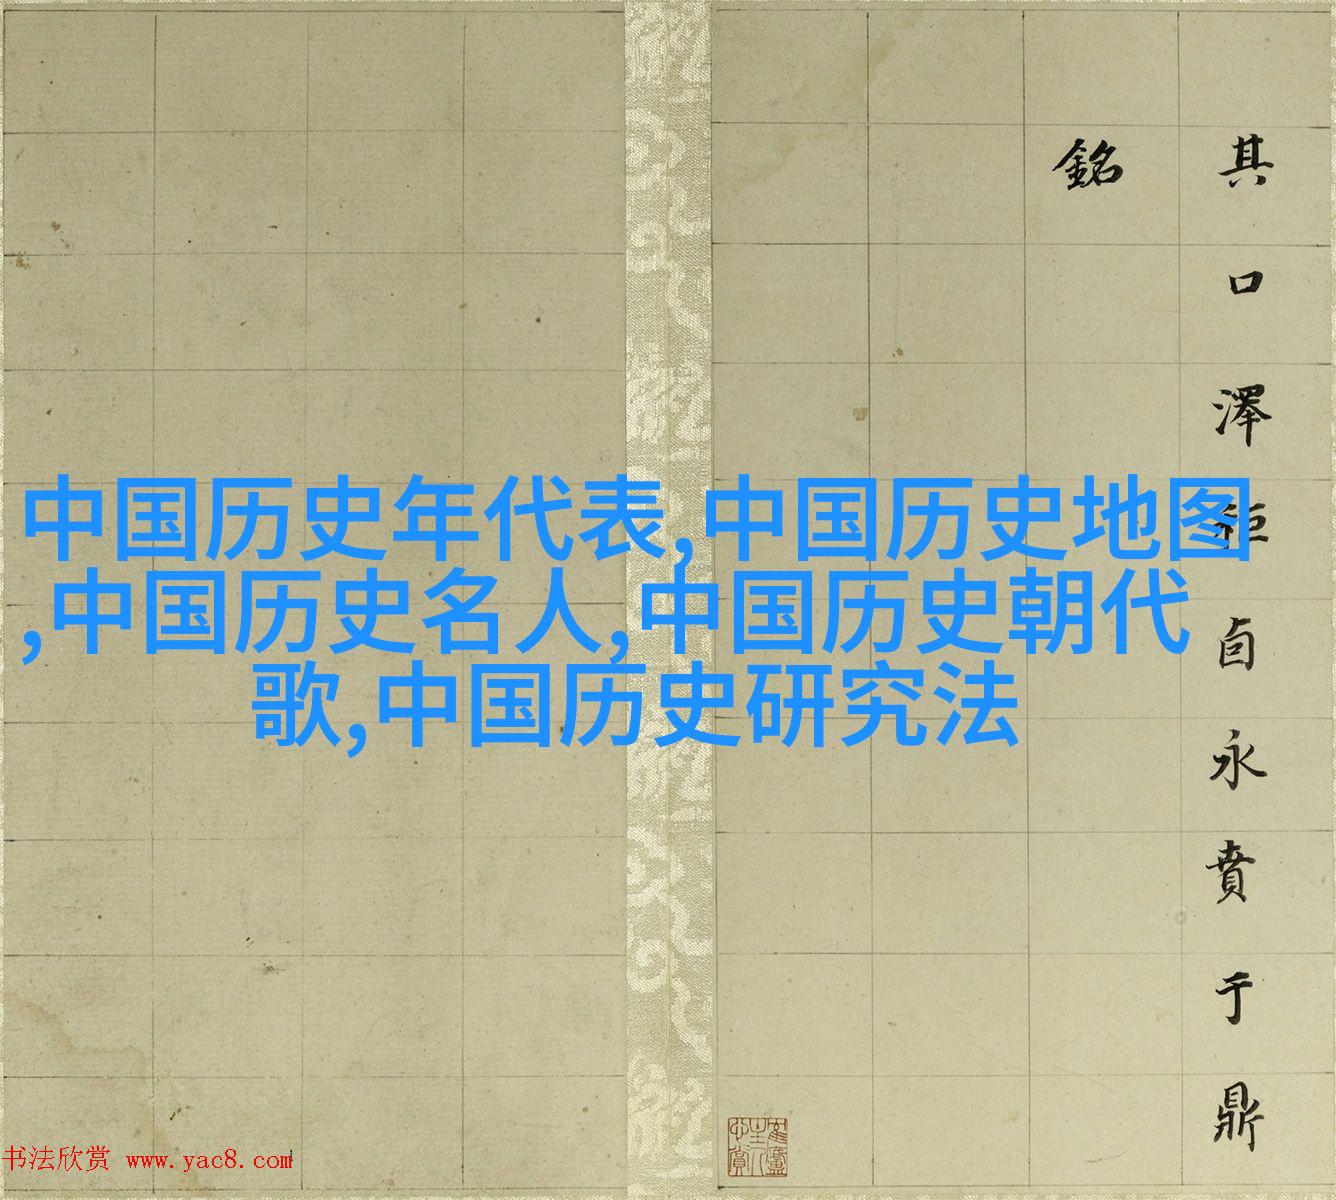 其口澤卣永賁于鼎
銘
中国历史年代表,中国历史地图
,中国历史名人,中国历史朝代
歌,中国历史研究法
书法欣赏 www.yac8.com